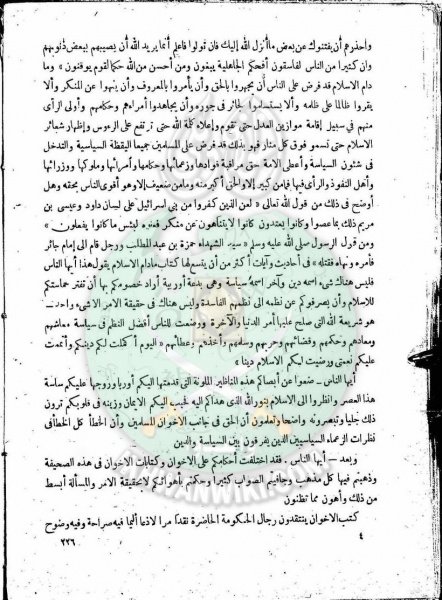 واحذرهم أن يفتنوك عن بعض ما أنزل الله إليك فان تولوا فاعلم أنما يريد الله أن يصيبهم ببعض ذنوبهم
وان كثيرا من الناس لفاسقون أفحكم الجاهلية يبغون ومن أحسن من الله حكما لقوم يوقنون » وما
دام الاسلام قد فرض على الناس أن يجهروا بالحق وأن يأمروا بالمعروف وأن ينهوا عن المنكر وألا
يقروا ظالما على ظلمه وألا يستسلموا لجائر فى جوره وأن يجاهدوا أمراءهم وحكامهم وأولى الرأى
منهم فى سبيل إقامة موازين العدل حتى تقوم وإعلاء كلمة الله حتى ترتفع على الرءوس وإظهار شعائر
الاسلام حتى تسمو فوق كل منار فهو بذلك قد فرض على المسلمين جميعا اليقظة السياسية والتدخل
فى شئون السياسة وأعطى الامة حق مراقبة قوادها وزعمائها وحكامها وأمرائها وملوكها ووزرائها
وأهل النفوذ والرأى فيها فما من كبير إلا والحق أكبر منه وما من ضعيف إلا وهو أقوى الناس بحقه وهل
أوضح فى ذلك من قول الله تعالى « لعن الذين كفروا من بنى اسرائيل على لسان داود وعيسى بن
مريم ذلك بما عصوا وكانوا يعتدون كانوا لا يتناهون عن منكر فعلوه لبئس ما كانوا يفعلون »
ومن قول الرسول صلى الله عليه وسلم « سيد الشهداء حمزة بن عبد المطلب ورجل قام الى إمام جائر
فأمره ونهاه فقتله » فى أحاديث وآيات أكثر من أن يتسع لها كتاب مادام الاسلام يقول هذا أيها الناس
فليس هناك شىء اسمه دين وآخر اسمه سياسة وهى بدعة أوربية أراد خصومكم بها أن تفتر حماستكم
للاسلام وأن يصرفوكم عن نظمه الى نظمهم الفاسدة وليس هناك فى حقيقة الامر الا شىء واحد
هو شريعة الله التى صلح عليها أمر الدنيا والآخرة ورضعت للناس أفضل النظم فى سياسة معاشهم
ومعادهم وحكمهم وقضائهم وحربهم وسلمهم وأخذهم وعطائهم « اليوم أكملت لكم دينكم وأتممت
عليكم نعمتى ورضيت لكم الاسلام دينا »
أيها الناس ــ ضعوا عن أبصاركم هذه المناظير الملونة التى قدمتها اليكم أوربا وروجها عليكم ساسة
هذا العصر وانظروا الى الاسلام بنور الله الذى هداكم اليه فحبب اليكم الايمان وزينه فى قلوبكم ترون
ذلك جليا وتبصرونه واضحا وتعلمون أن الحق فى جانب الاخوان المسلمين وأن الخطأ كل الخطأ فى
نظرات الزعماء السياسيين الذين يفرقون بين السياسة والدين
وبعد ــ أيها الناس . فقد اختلفت أحكامكم على الاخوان وكتابات الاخوان فى هذه الصحيفة
وذهبتم فيها كل مذهب وجافيتم الصواب كثيرا وحكمتم بأهوائكم لا بحقيقة الامر والمسألة أبسط
من ذلك وأهون مما تظنون
كتب الاخوان ينتقدون رجال الحكومة الحاضرة نقدا مرا لاذعا أليما فيه صراحة وفيه وضوح
٤
٢٢٦